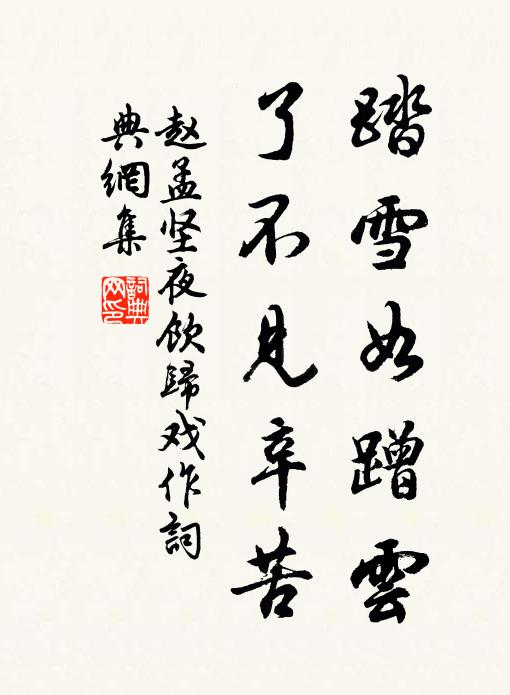 踏雪如蹭雲
了不見辛苦
赵孟坚夜飲歸戏作詞
典網集
詞典网印